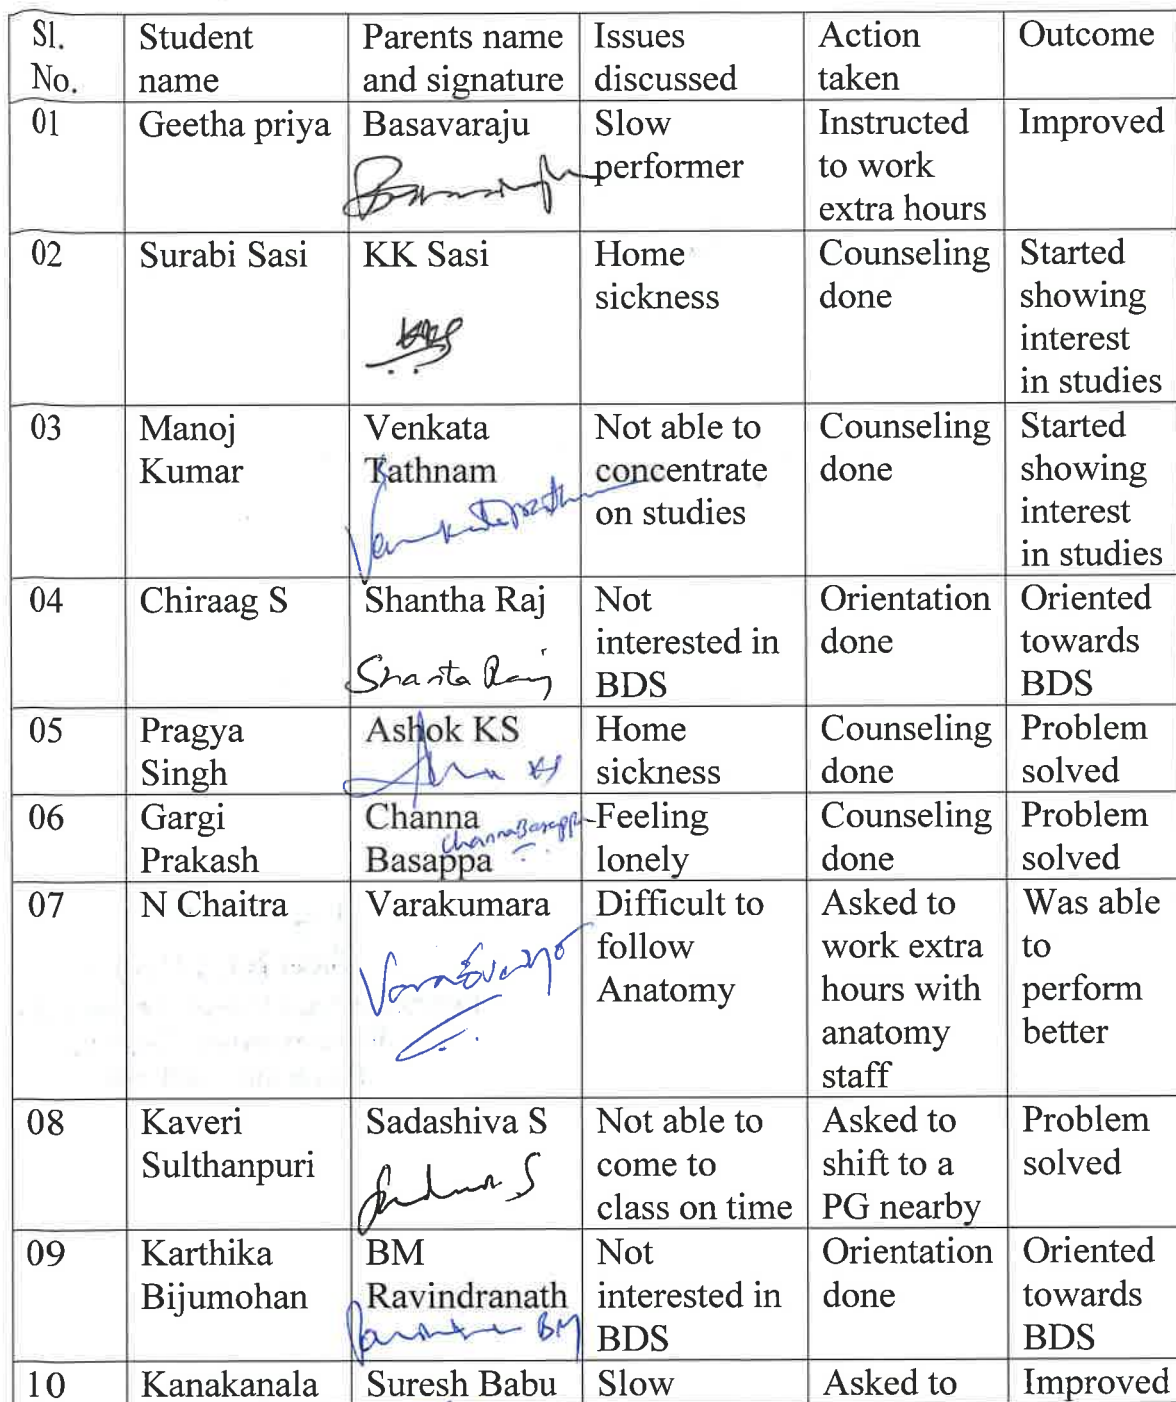 Sl. No. | Student name | Parents name and signature | Issues discussed | Action taken | Outcome
01 | Geetha priya | Basavaraju | Slow performer | Instructed to work extra hours | Improved
02 | Surabi Sasi | KK Sasi | Home sickness | Counseling done | Started showing interest in studies
03 | Manoj Kumar | Venkata Tathnam | Not able to concentrate on studies | Counseling done | Started showing interest in studies
04 | Chiraag S | Shantha Raj Shanta Raj | Not interested in BDS | Orientation done | Oriented towards BDS
05 | Pragya Singh | Ashok KS | Home sickness | Counseling done | Problem solved
06 | Gargi Prakash | Channa Basappa ChannaBasappa | Feeling lonely | Counseling done | Problem solved
07 | N Chaitra | Varakumara | Difficult to follow Anatomy | Asked to work extra hours with anatomy staff | Was able to perform better
08 | Kaveri Sulthanpuri | Sadashiva S | Not able to come to class on time | Asked to shift to a PG nearby | Problem solved
09 | Karthika Bijumohan | BM Ravindranath | Not interested in BDS | Orientation done | Oriented towards BDS
10 | Kanakanala | Suresh Babu | Slow | Asked to | Improved